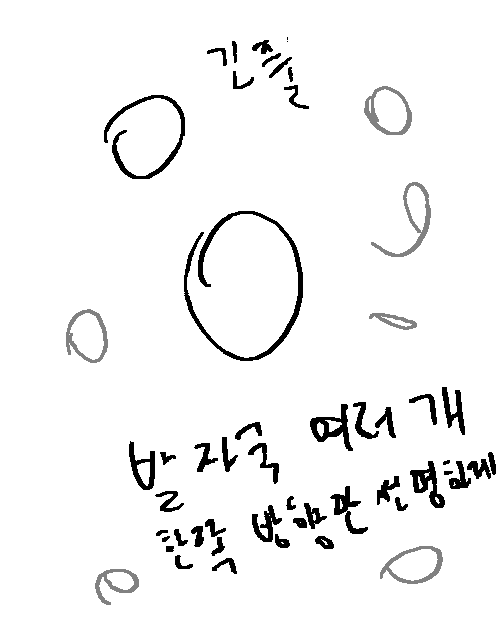 긴 줄
발자국 여러개
한쪽 방향만 선명하게